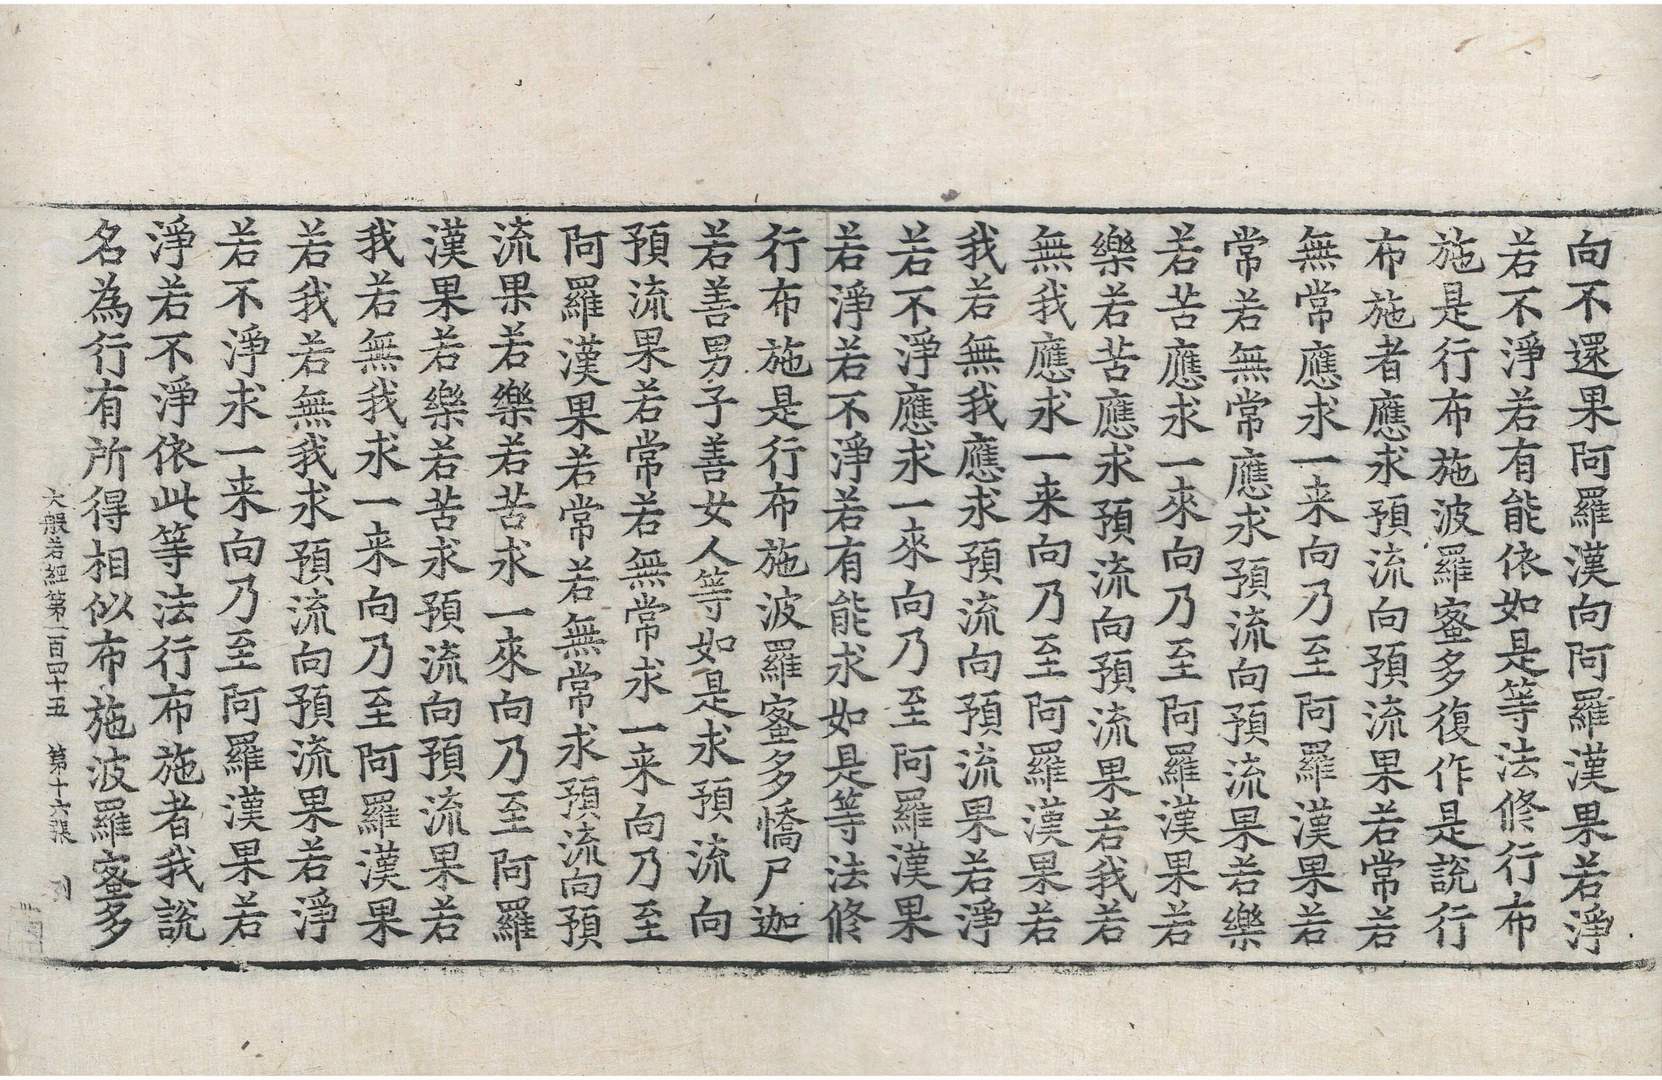 向不還果阿羅漢向阿羅漢果若淨
若不淨若有能依如是等法修行布
施是行布施波羅蜜多復作是說行
布施者應求預流向預流果若常若
無常應求一来向乃至阿羅漢果若
常若無常應求預流向預流果若樂
若苦應求一來向乃至阿羅漢果若
樂若苦應求預流向預流果若我若
無我應求一来向乃至阿羅漢果若
我若無我應求預流向預流果若淨
若不淨應求一來向乃至阿羅漢果
若淨若不淨若有能求如是等法修
行布施是行布施波羅蜜多憍尸迦
若善男子善女人等如是求預流向
預流果若常若無常求一来向乃至
阿羅漢果若常若無常求預流向預
流果若樂若苦求一來向乃至阿羅
漢果若樂若苦求預流向預流果若
我若無我求一来向乃至阿羅漢果
若我若無我求預流向預流果若淨
若不淨求一来向乃至阿羅漢果若
淨若不淨依此等法行布施者我說
名為行有所得相似布施波羅蜜多
大般若經第一百四十五 第十六張 列